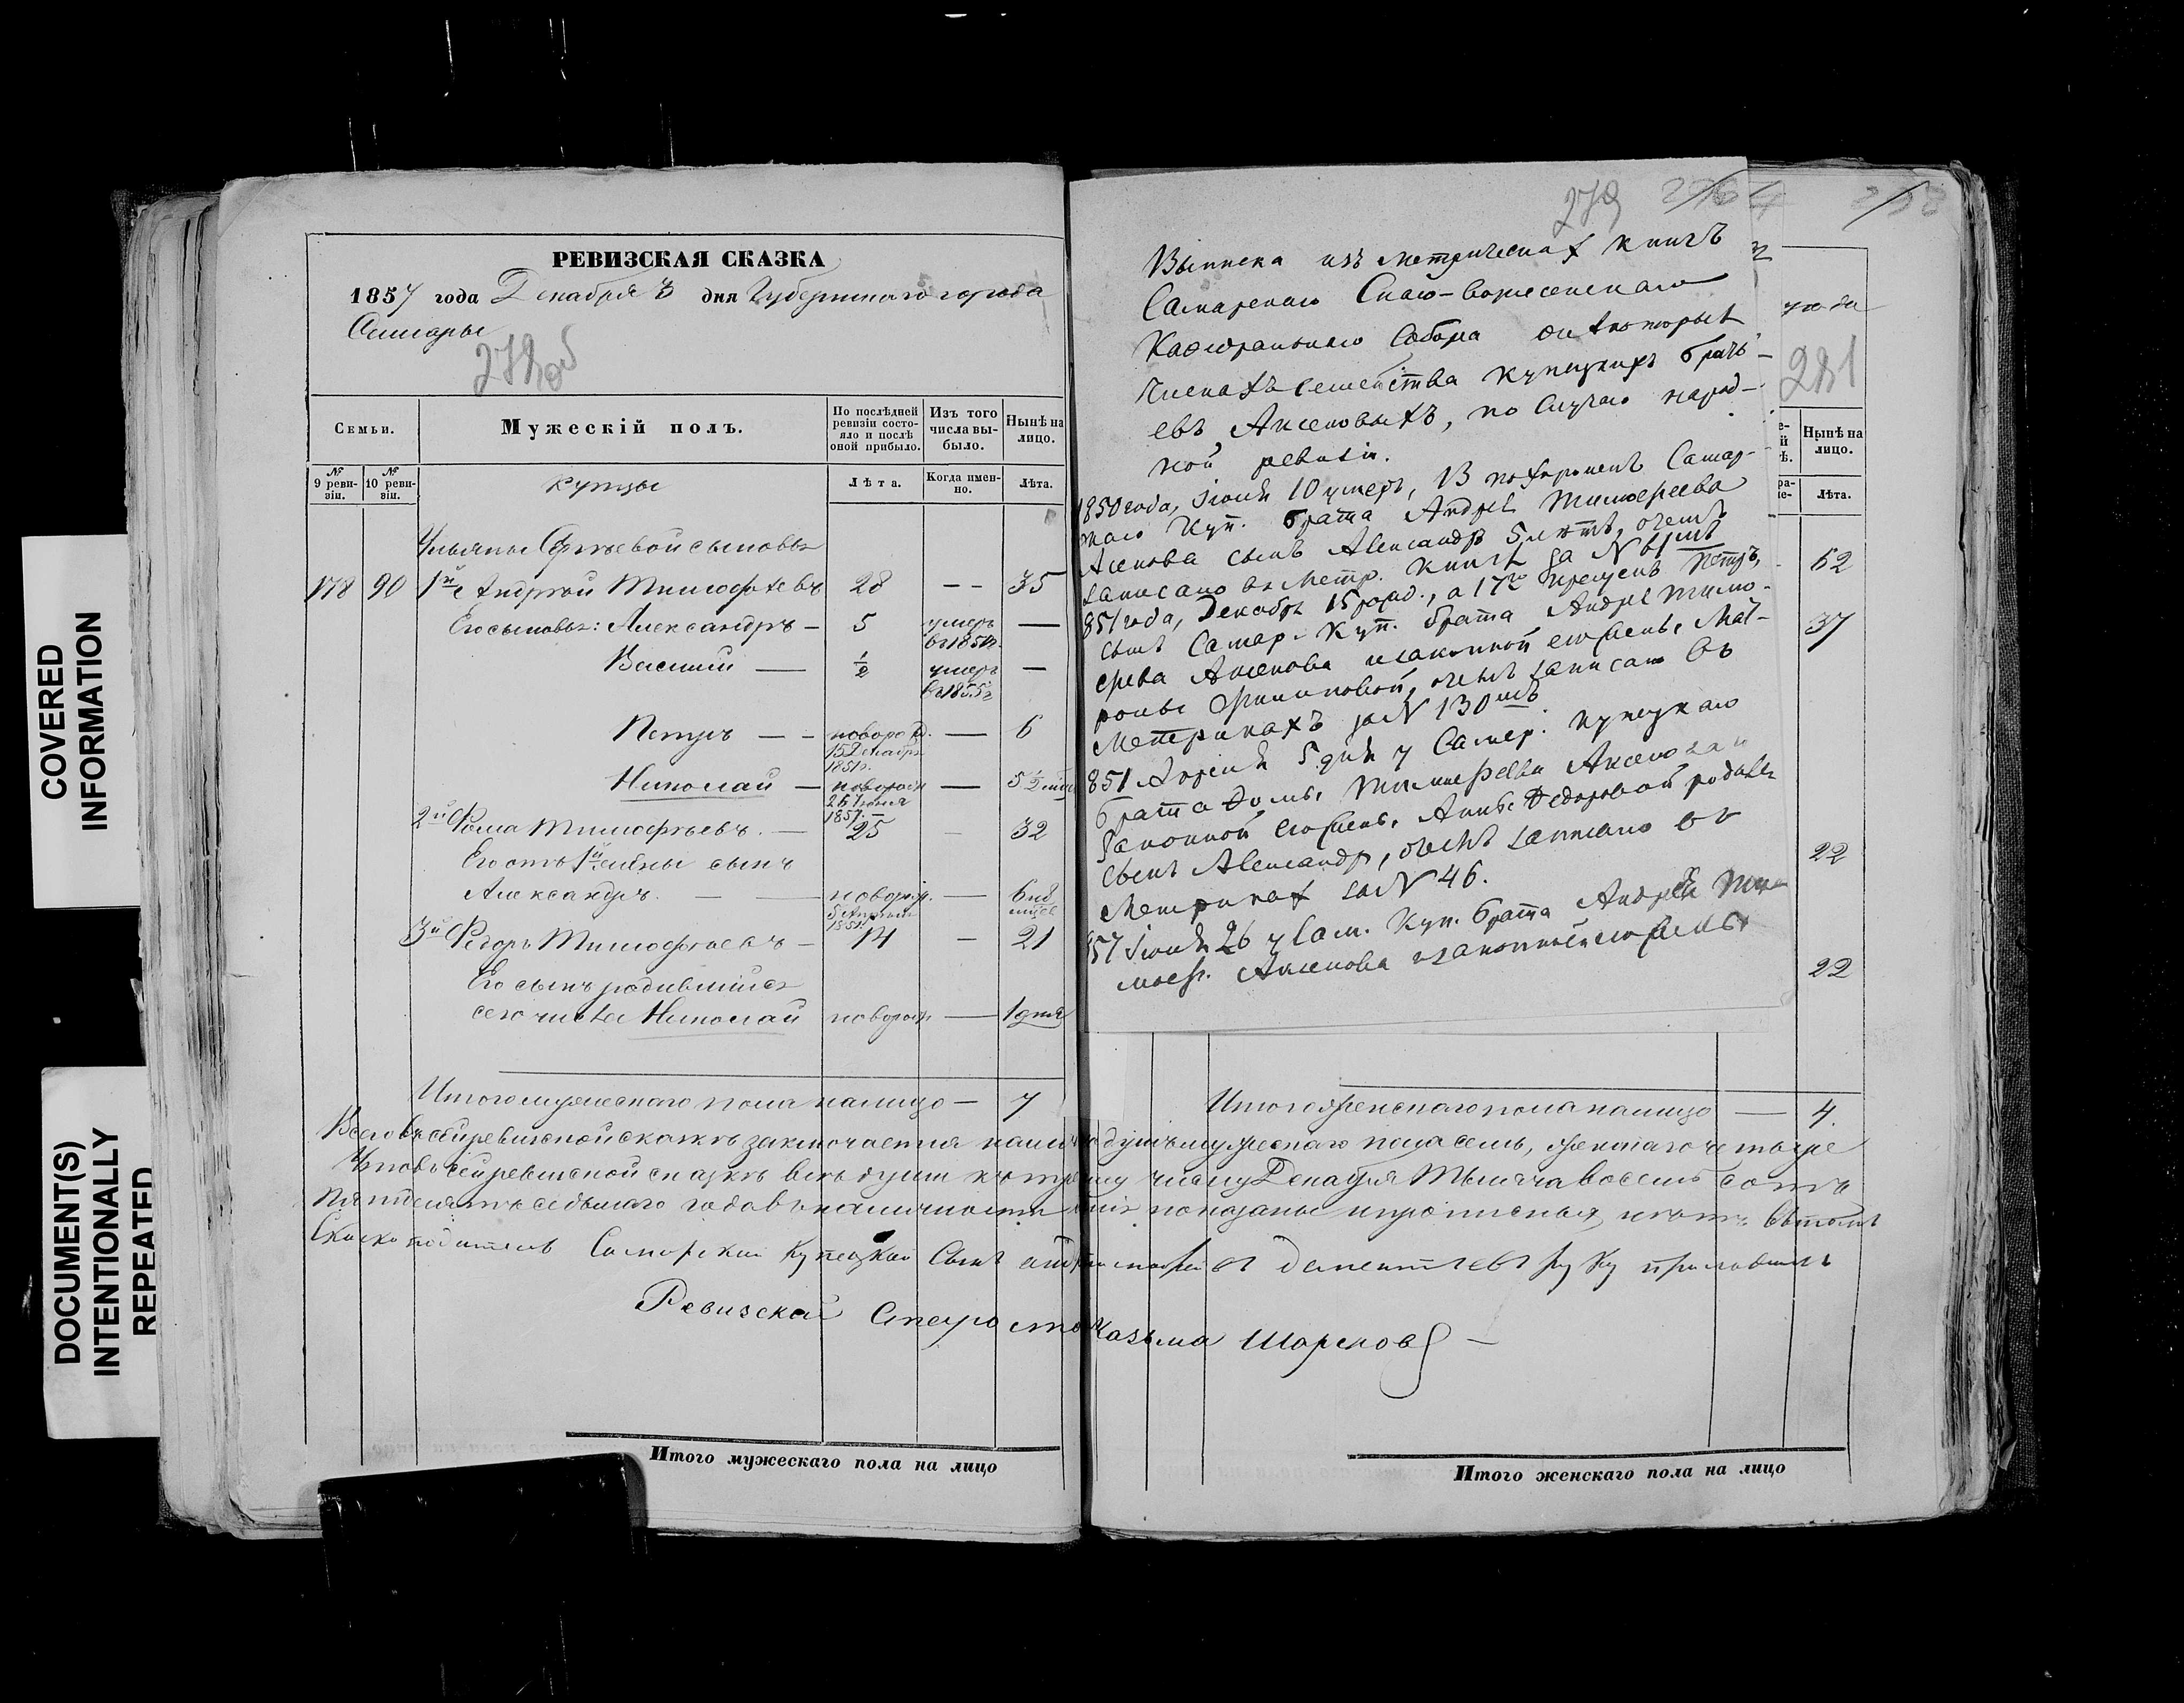 COVERED
INFORMATION
DOCUMENT(S)
INTENTIONALLY
REPEATED
РЕВИЗСКАЯ СКАЗКА
1857 года Декабря 3 дня Губернскаго города
Самары
278об
Семьи.
Мужескій полъ.
По послѣдней ревизіи состояло и послѣ оной прибыло.
Изъ того числа выбыло.
Нынѣ на лицо.
№ 9 ревизіи.
№ 10 ревизіи.
купцы
Лѣта.
Когда именно.
Лѣта.
Ульяны Сергѣевой сыновья
178 90 1й Андрей Тимофѣевъ 28 — — 35
Его сыновья: Александръ — 5 умеръ в 1850г. —
Василий — ½ умеръ в 1855г —
Петръ — — новорожд. 15 Декабря 1851г. — 6
Николай — новорожд 26 Іюня 1857. — 5½ мѣс
2й Фома Тимофѣевъ. — 25 — 32
Его отъ 1й жены сынъ
Александръ. — — новорожд. 5 Апрѣля 1851г — 6 лѣт
3й Федоръ Тимофѣевъ — 14 — 21
Его сынъ родившійся
сего числа Николай новорож — 1 дня
Итого мужескаго пола налицо — 7
279
Выписка изъ метрическихъ книгъ
Самарскаго Спасо-вознесенскаго
Кафедральнаго Собора о нѣкоторыхъ
членахъ семейства купецкихъ брать-
евъ Аксеновыхъ, по случаю народ-
ной ревизіи.
1850 года, Іюня 10 умеръ, 13 похороненъ Самар-
скаго Куп. брата Андрея Тимофеева
Аксенова сынъ Александръ 5 лѣтъ, о чемъ
записано въ Метр. книгѣ за N 61мъ
851 года, Декабря 15 рожд., а 17го крещенъ Петръ,
сынъ Самар. Куп. брата Андрея Тимо-
феева Аксенова и законной его жены Мат-
роны Филиповой, о чемъ записано въ
Метрикахъ за N 130мъ
851 Апрѣля 5 дня у Самар. купецкаго
брата Фомы Тимофеева Аксенова и
законной его жены Анны Федоровой родился
сынъ Александръ, о чемъ записано въ
Метрикахъ за N 46.
857 Іюня 26 у Сам. Куп. брата Андрея Ти
моф. Аксенова и законной его жены
281
Нынѣ на лицо.
Лѣта.
52
37
22
22
Итого женскаго пола налицо — 4.
Всего въ сей ревизской сказкѣ заключается налицо душъ мужескаго пола семь, женскаго четыре
Что въ сей ревизской сказкѣ всѣ души къ третьему числу Декабря Тысяча восемь сотъ
пятьдесятъ седьмаго года въ наличности показаны и прописныхъ нѣтъ въ томъ
Сказкоподатель Самарский Купецкай Сынъ руку приложилъ
Ревизской Староста Казьма Шарепов
Итого мужескаго пола на лицо
Итого женскаго пола на лицо